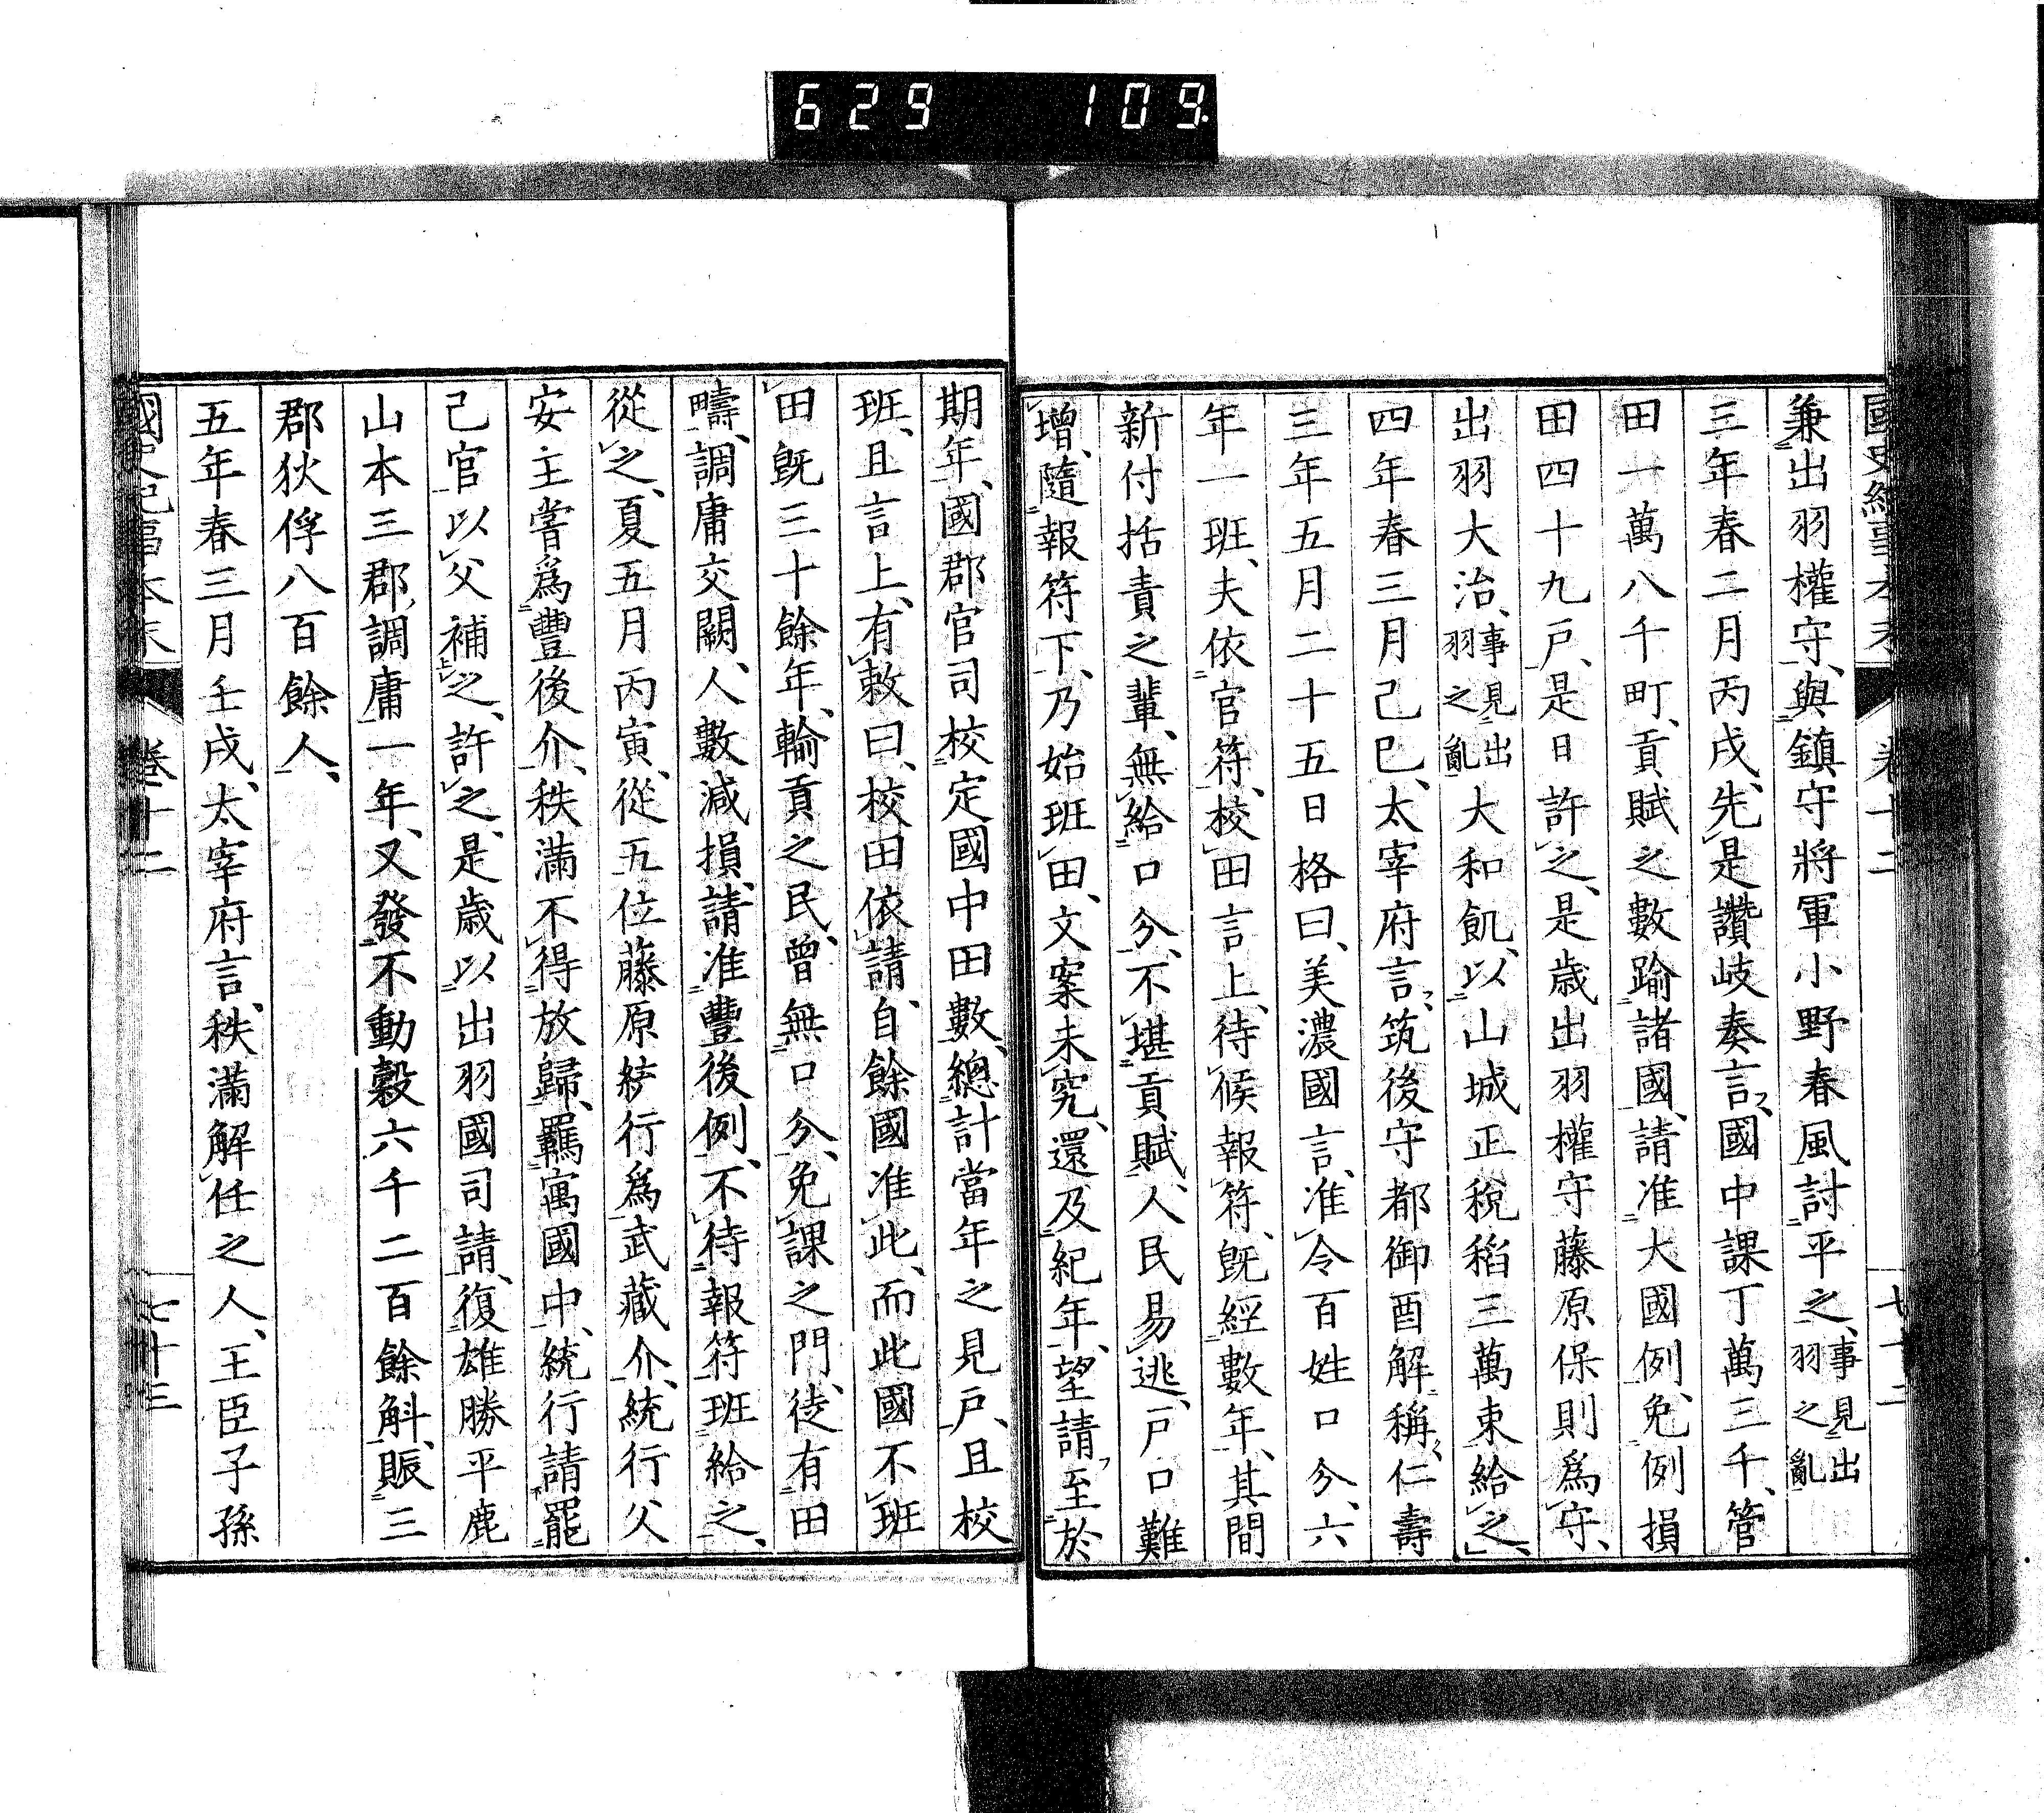 629 109
國史紀事本末 卷十二 七十二
兼出羽權守、與鎮守將軍小野春風討平之、事見出羽之亂
三年春二月丙戌、先是讚岐奏言、國中課丁萬三千、管
田一萬八千町、貢賦之數踰諸國、請准大國例、免例損
田四十九戶、是日許之、是歲出羽權守藤原保則爲守、
出羽大治、事見出羽之亂大和飢、以山城正稅稻三萬束給之、
四年春三月己巳、太宰府言、筑後守都御酉解稱、仁壽
三年五月二十五日格曰、美濃國言、准令百姓口分、六
年一班、夫依官符、校田言上、待候報符、既經數年、其間
新付括責之輩、無給口分、不堪貢賦、人民易逃、戶口難
增、隨報符下、乃始班田、文案未究、還及紀年、望請至於
期年、國郡官司校定國中田數、總計當年之見戶、且校
班、且言上、有敕曰、校田依請、自餘國准此、而此國不班
田既三十餘年、輸貢之民、曾無口分、免課之門、徒有田
疇、調庸交闕、人數減損、請准豐後例、不待報符班給之、
從之、夏五月丙寅、從五位藤原統行爲武藏介、統行父
安主嘗爲豐後介、秩滿不得放歸、羈寓國中、統行請罷
己官以父補之、許之、是歲以出羽國司請、復雄勝平鹿
山本三郡、調庸一年、又發不動穀六千二百餘斛、賑三
郡狄俘八百餘人、
五年春三月壬戌、太宰府言、秩滿解任之人、王臣子孫
國史紀事本末 卷十二 七十三